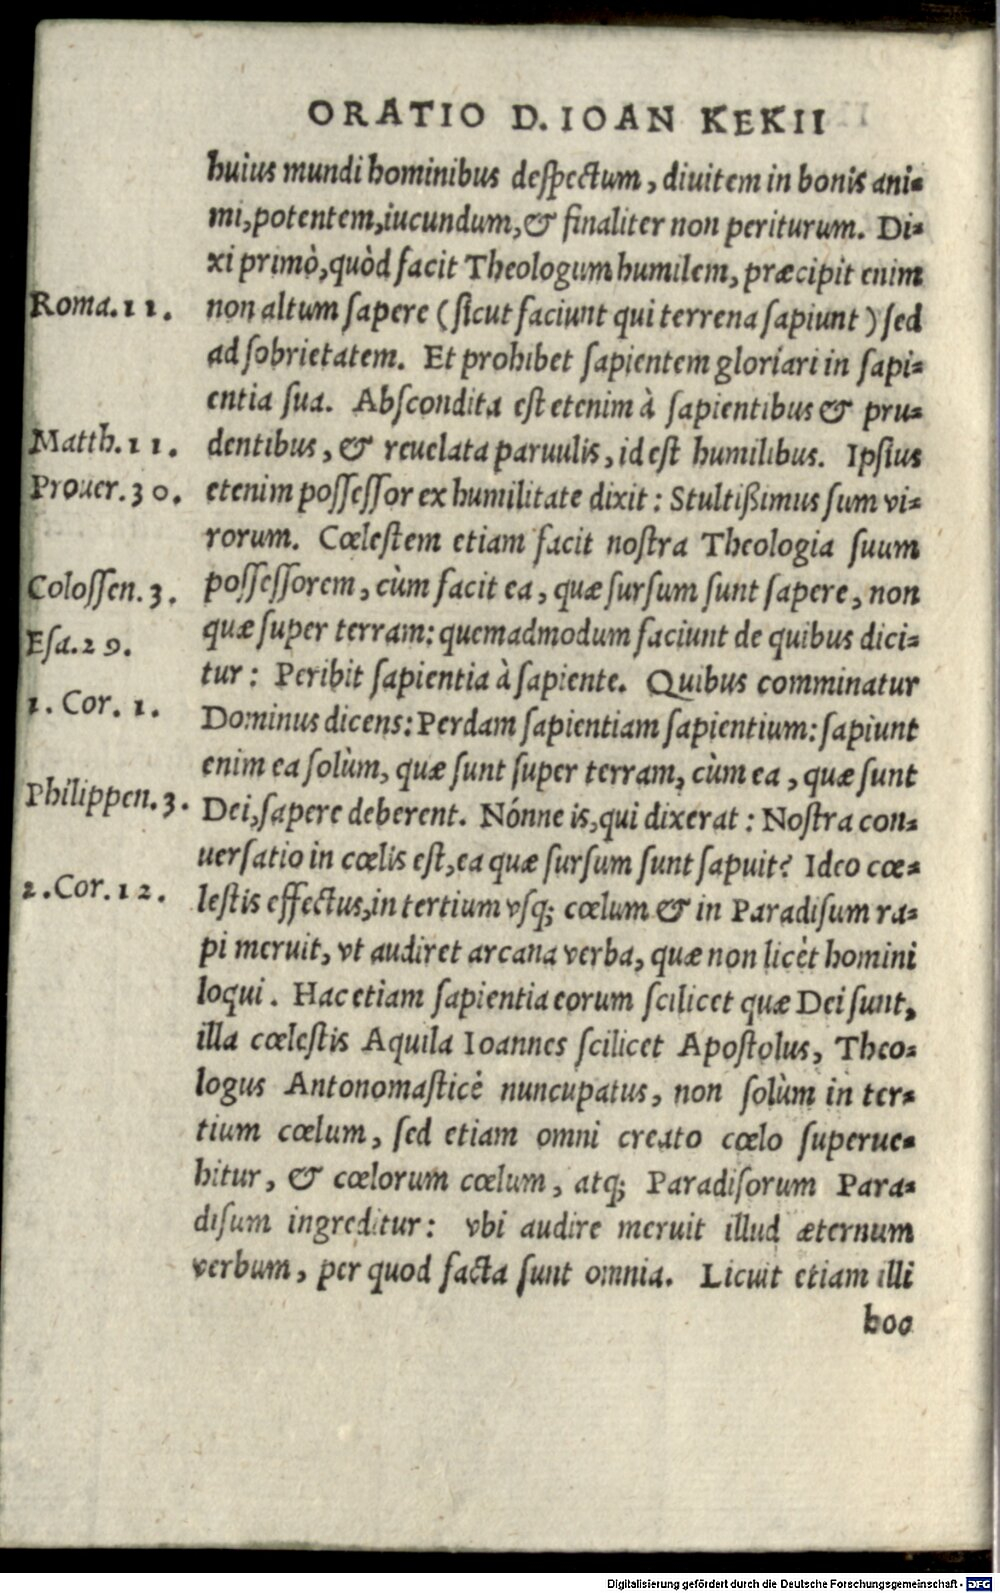 ORATIO D. IOAN KEKII
huius mundi hominibus despectum, diuitem in bonis ani-
mi, potentem, iucundum, & finaliter non periturum. Di-
xi primò, quòd facit Theologum humilem, præcipit enim
Roma. 11. non altum sapere (sicut faciunt qui terrena sapiunt) sed
ad sobrietatem. Et prohibet sapientem gloriari in sapi-
entia sua. Abscondita est etenim à sapientibus & pru-
Matth. 11. dentibus, & reuelata paruulis, id est humilibus. Ipsius
Prouer. 30. etenim possessor ex humilitate dixit: Stultißimus sum vi-
rorum. Cœlestem etiam facit nostra Theologia suum
Colossen. 3. possessorem, cùm facit ea, quæ sursum sunt sapere, non
Esa. 29. quæ super terram: quemadmodum faciunt de quibus dici-
tur: Peribit sapientia à sapiente. Quibus comminatur
1. Cor. 1. Dominus dicens: Perdam sapientiam sapientium: sapiunt
enim ea solùm, quæ sunt super terram, cùm ea, quæ sunt
Philippen. 3. Dei, sapere deberent. Nónne is, qui dixerat: Nostra con-
uersatio in cœlis est, ea quæ sursum sunt sapuit? Ideo cœ-
2. Cor. 12. lestis effectus, in tertium vsq; cœlum & in Paradisum ra-
pi meruit, vt audiret arcana verba, quæ non licèt homini
loqui. Hac etiam sapientia eorum scilicet quæ Dei sunt,
illa cœlestis Aquila Ioannes scilicet Apostolus, Theo-
logus Antonomasticè nuncupatus, non solùm in ter-
tium cœlum, sed etiam omni creato cœlo superue-
hitur, & cœlorum cœlum, atq; Paradisorum Para-
disum ingreditur: vbi audire meruit illud æternum
verbum, per quod facta sunt omnia. Licuit etiam illi
hoc
Digitalisierung gefördert durch die Deutsche Forschungsgemeinschaft - DFG